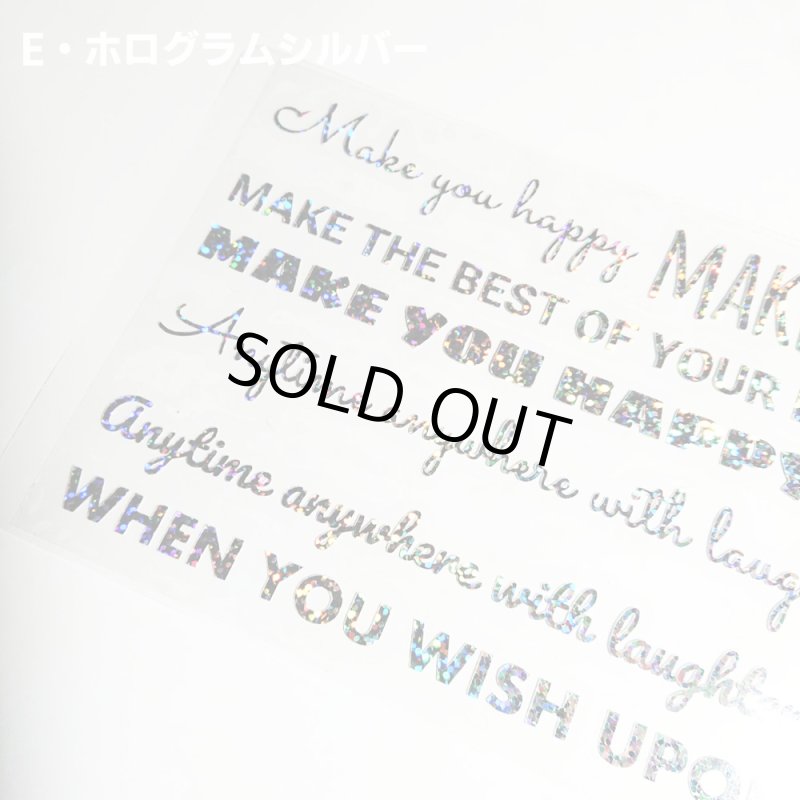 E・ホログラムシルバー
Make you happy MAKE
MAKE THE BEST OF YOUR
MAKE YOU HAPPY
Anytime anywhere with laug
SOLD OUT
Anytime anywhere with laughter
WHEN YOU WISH UPON